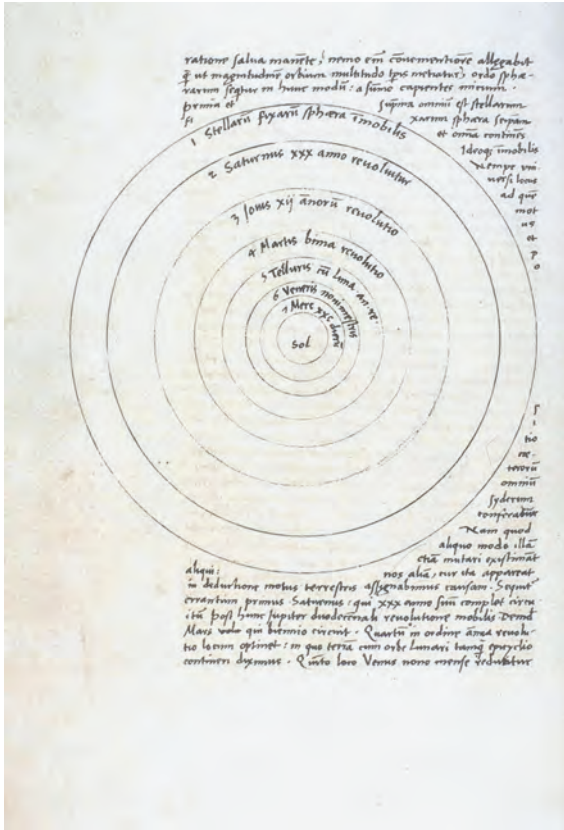 ratione salua manẽte, nemo em̃ cõuementiorẽ allegabit
q̃ ut magnitudinẽ orbium multitudo tp̃is metiatur, ordo sphæ-
rarum seq̃tur in hunc modũ: a sũmo capientes initium.
prima et suprema omniũ est stellarum
fi xarum sphæra seipsam
et omnia continẽs
Ideoq; ĩmobilis
nempe uni
uersi locus
ad quẽ
mot
us
et
p
o
1 Stellarũ fixarũ sphæra ĩmobilis
2 Saturnus xxx anno reuoluitur
3 Jouis xij ãnorũ reuolutio
4 Martis bima reuolutio
5 Telluris cũ luna an. re.
6 Veneris nonimestris
7 Merc xxc dierũ
Sol
s
i
tio
ne.
terorũ
omniũ
syderum
conferatur
Nam quod
aliquo modo illã
etiã mutari existimãt
aliqui: nos aliã, cur ita appareat
in deductione motus terrestris assignabimus causam. Sequit̃
errantium primus Saturnus: qui xxx anno suũ complet circu
itũ post hunc Jupiter duodecẽnali reuolutione mobilis Deind̃
Mars qui biennio circuit. Quartũ in ordine ãnua reuolu-
tio locum optinet: in quo terrã cum orbe Lunari tamq̃ epicyclio
contineri diximus. Quĩto loco Venus nono mense reducitur